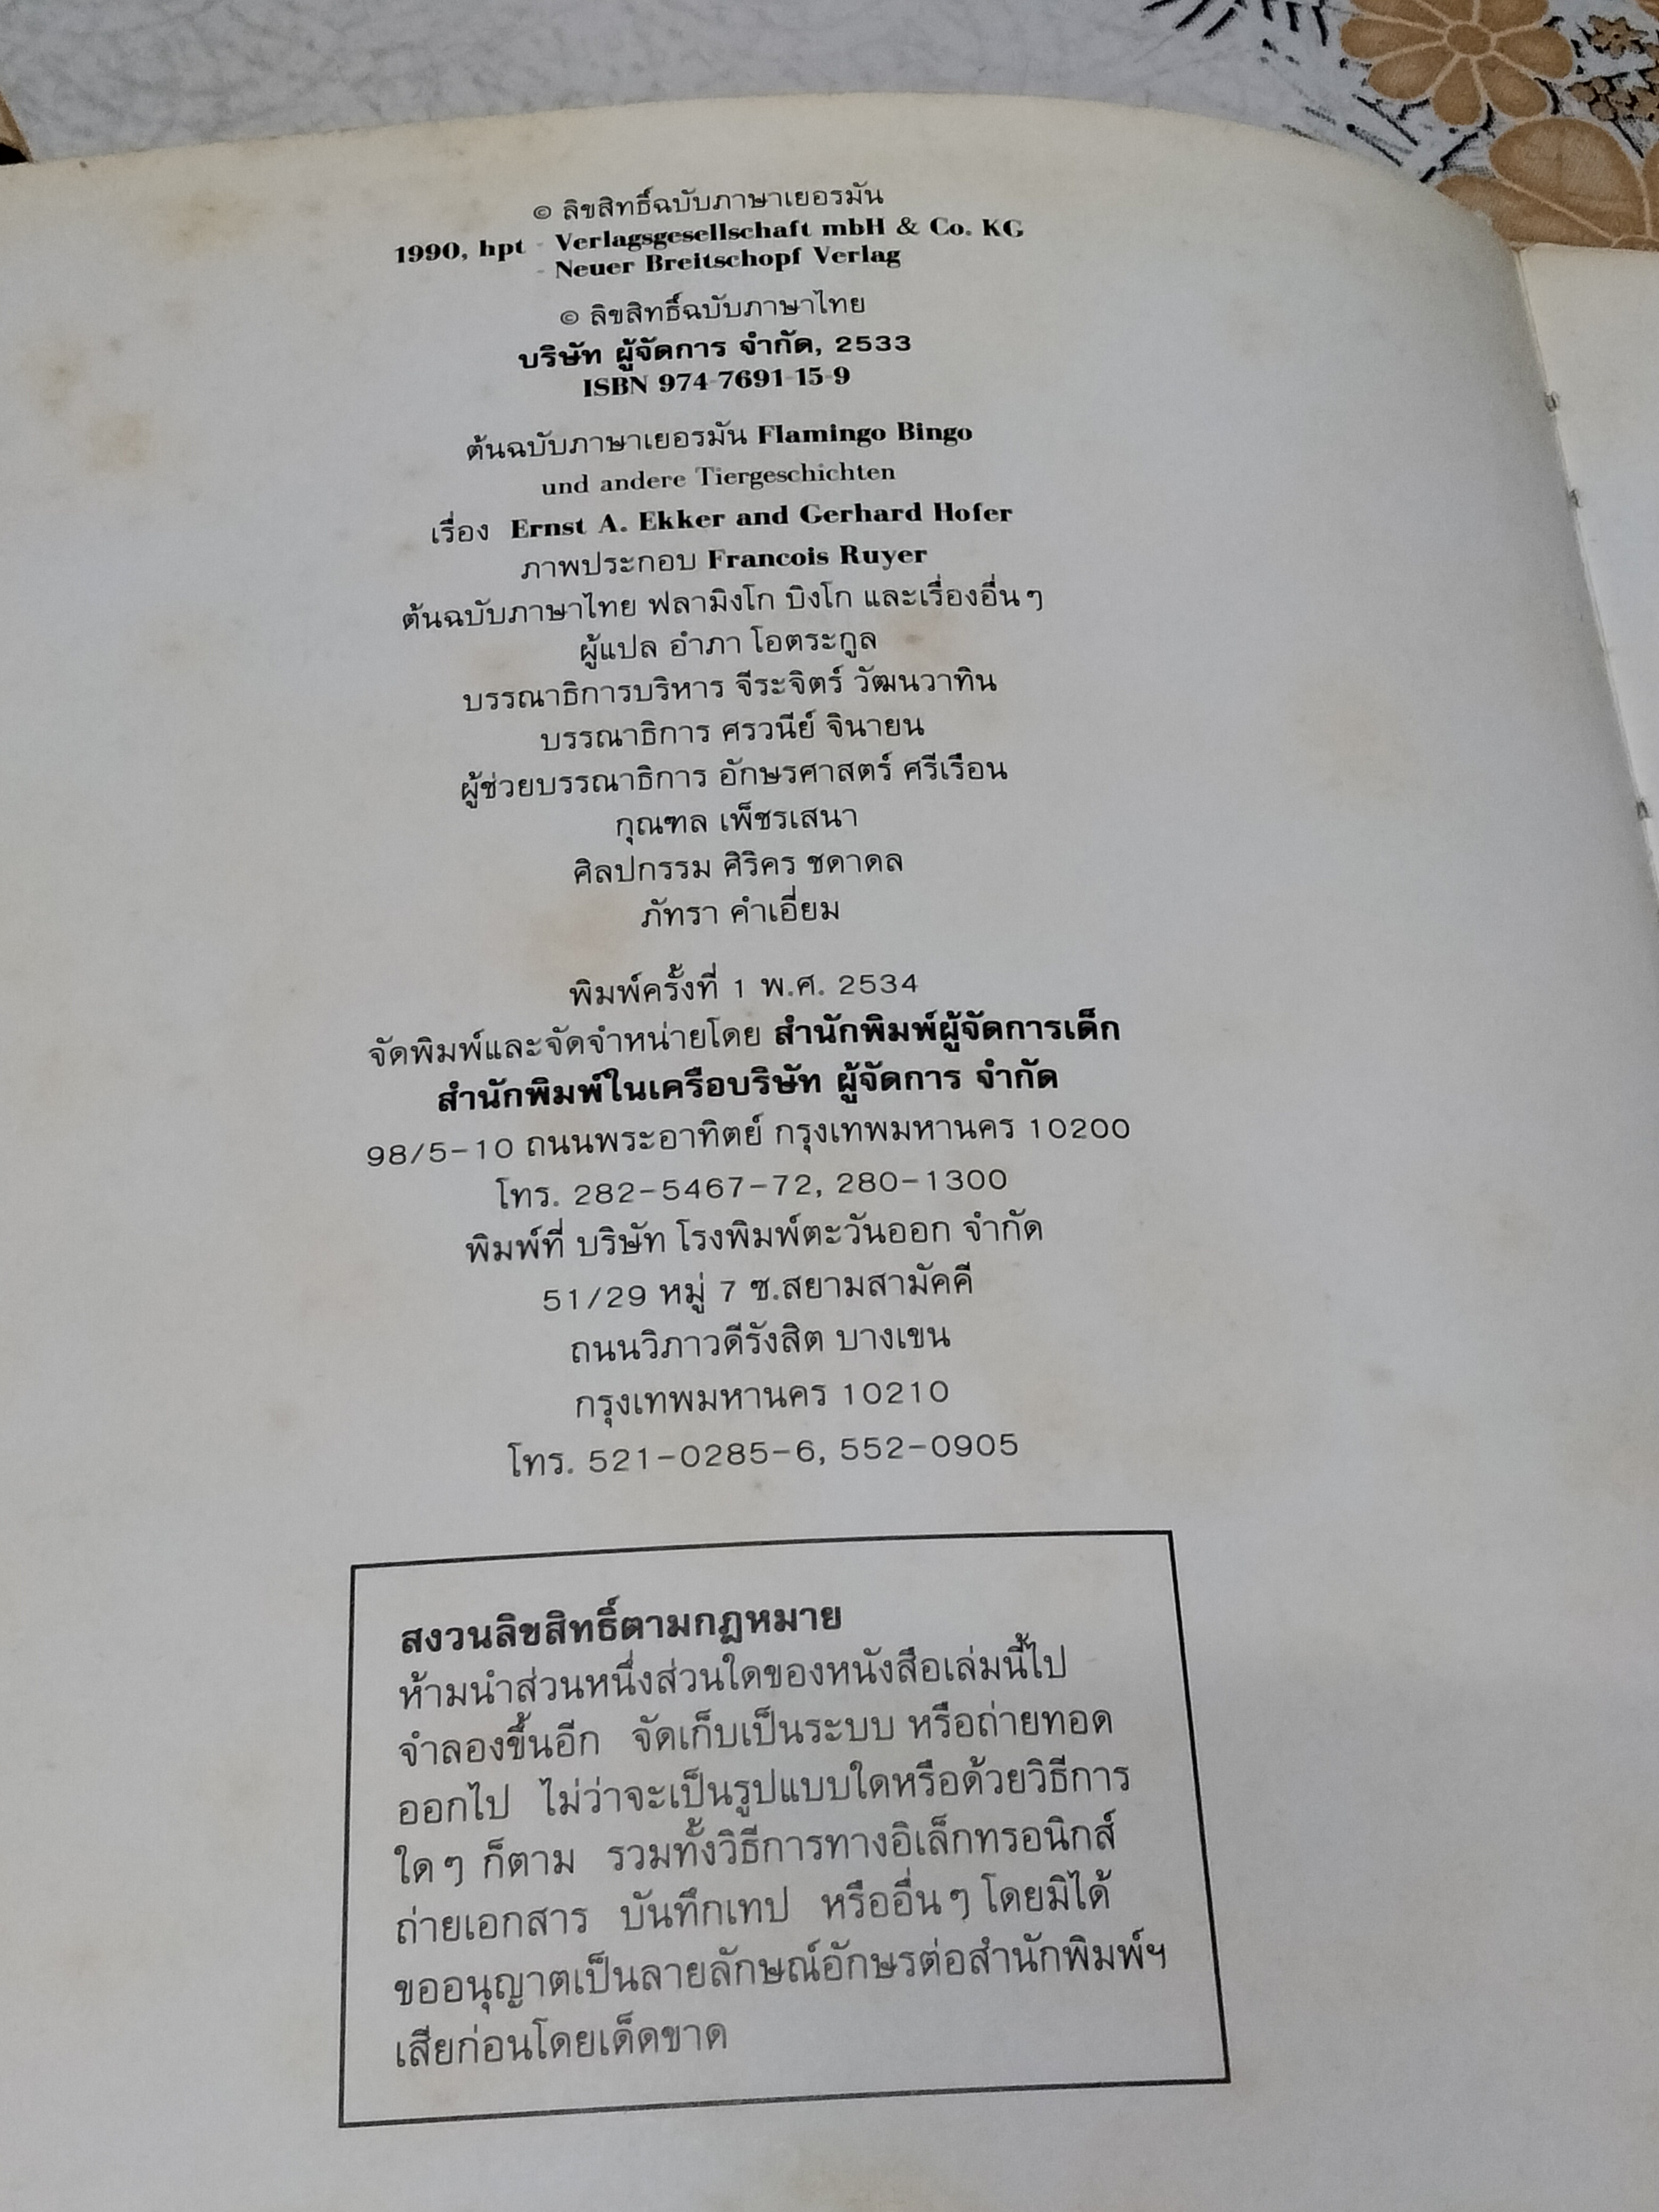 © ลิขสิทธิ์ฉบับภาษาเยอรมัน
1990, hpt - Verlagsgesellschaft mbH & Co. KG
- Neuer Breitschopf Verlag
© ลิขสิทธิ์ฉบับภาษาไทย
บริษัท ผู้จัดการ จำกัด, 2533
ISBN 974-7691-15-9
ต้นฉบับภาษาเยอรมัน Flamingo Bingo
und andere Tiergeschichten
เรื่อง Ernst A. Ekker and Gerhard Hofer
ภาพประกอบ Francois Ruyer
ต้นฉบับภาษาไทย ฟลามิงโก บิงโก และเรื่องอื่นๆ
ผู้แปล อำภา โอตระกูล
บรรณาธิการบริหาร จีระจิตร์ วัฒนวาทิน
บรรณาธิการ ศรวนีย์ จินายน
ผู้ช่วยบรรณาธิการ อักษรศาสตร์ ศรีเรือน
กุณฑล เพ็ชรเสนา
ศิลปกรรม ศิริคร ชดาดล
ภัทรา คำเอี่ยม
พิมพ์ครั้งที่ 1 พ.ศ. 2534
จัดพิมพ์และจัดจำหน่ายโดย สำนักพิมพ์ผู้จัดการเด็ก
สำนักพิมพ์ในเครือบริษัท ผู้จัดการ จำกัด
98/5-10 ถนนพระอาทิตย์ กรุงเทพมหานคร 10200
โทร. 282-5467-72, 280-1300
พิมพ์ที่ บริษัท โรงพิมพ์ตะวันออก จำกัด
51/29 หมู่ 7 ซ.สยามสามัคคี
ถนนวิภาวดีรังสิต บางเขน
กรุงเทพมหานคร 10210
โทร. 521-0285-6, 552-0905
สงวนลิขสิทธิ์ตามกฎหมาย
ห้ามนำส่วนหนึ่งส่วนใดของหนังสือเล่มนี้ไป
จำลองขึ้นอีก จัดเก็บเป็นระบบ หรือถ่ายทอด
ออกไป ไม่ว่าจะเป็นรูปแบบใดหรือด้วยวิธีการ
ใดๆ ก็ตาม รวมทั้งวิธีการทางอิเล็กทรอนิกส์
ถ่ายเอกสาร บันทึกเทป หรืออื่นๆ โดยมิได้
ขออนุญาตเป็นลายลักษณ์อักษรต่อสำนักพิมพ์ฯ
เสียก่อนโดยเด็ดขาด